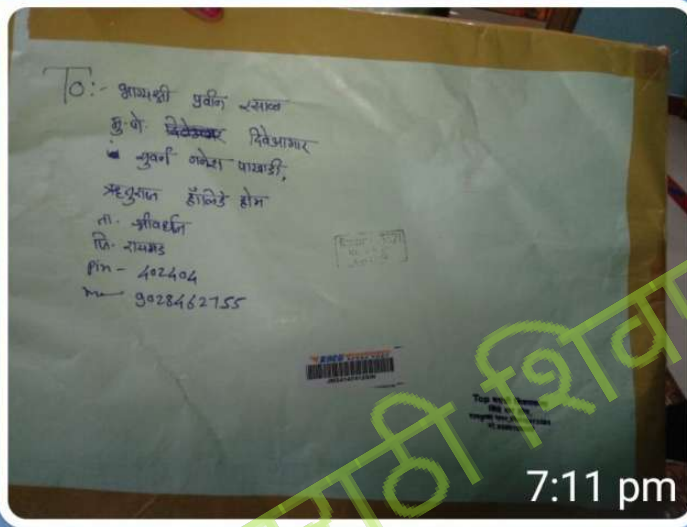 To:- भाग्यश्री प्रवीन रसाळ
मु.पो. दिवेआगार
सुवर्ण गणेश पाखाडी,
ऋतुराज हॉलिडे होम
ता. श्रीवर्धन
जि. रायगड
Pin - 402404
9028462755
Top
मराठी शिवा
7:11 pm